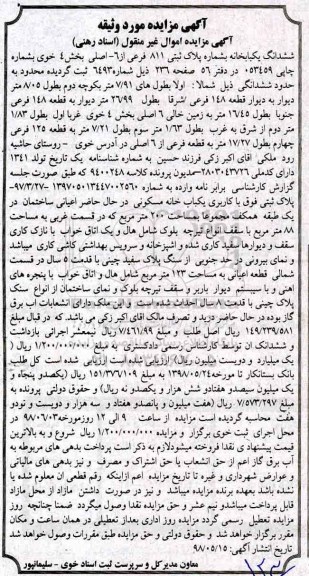 آگهی مزایده مورد وثیقه
آگهی مزایده اموال غیر منقول (اسناد رهنی)
ششدانگ یکبابخانه بشماره پلاک ثبتی ۸۱۱ فرعی از۶-اصلی بخش۴ خوی بشماره
چاپی ۰۵۳۴۵۹ در دفتر ۵۶ صفحه ۲۳۶ ذیل شماره۶۴۹۳ ثبت گردیده محدود به
حدود ششدانگی ذیل شمالا: اولا بطول های ۷/۹۱ متر بکوچه دوم بطول ۸/۰۵ متر
دیوار به دیوار قطعه ۱۴۸ فرعی شرقا بطول ۲۶/۹۹ دیوار به قطعه ۱۴۸ فرعی
جنوبا بطول ۱۶/۴۵ متر به زمین خالی ۶ اصلی بخش ۴ خوی غربا اول بطول ۱/۸۳
متر دوم از شرق به غرب بطول ۱/۶۳ متر سوم بطول ۷/۲۱ متر به قطعه ۱۲۵ فرعی
چهارم بطول ۱۷/۲۷ متر به قطعه فرعی از ۶ اصلی در آدرس خوی - روستای حاشیه
رود ملکی آقای اکبر زکی فرزند حسین به شماره شناسنامه یک تاریخ تولد ۱۳۴۱
دارای کدملی ۲۸۰۳۰۴۳۷۲۶-مدیون پرونده کلاسه ۹۴۰۰۲۴۸ که طبق صورت جلسه
گزارش کارشناسی برابر نامه وارده به شماره ۱۳۹۷۰۵۰۱۳۴۴۷۰۰۲۵۶۰ -۹۷/۳/۲۷
پلاک ثبتی فوق با کاربری یکباب خانه مسکونی در حال حاضر اعیانی ساختمان در
یک طبقه همکف مجموعا بمساحت ۲۰۰ متر مربع که در قسمت غربی به مساحت
۸۸ متر مربع با سقف انواع تیرچه بلوک شامل هال و یک اتاق خواب با نازک کاری
سقف و دیوارها سفید کاری شده و اشپزخانه و سرویس بهداشتی کاشی کاری میباشد
و نمای بیرونی در حد جنوبی از سنگ پلاک سفید چینی با قدمت ۵ سال در قسمت
شمالی قطعه اعیانی به مساحت ۱۲۳ متر مربع شامل هال و اتاق خواب با پنجره های
اهنی و با سیستم دیوار باربر و سقف تیرچه بلوک و نمای ساختمان از انواع سنک
پلاک چینی با قدمت ۸ سال احداث شده است و این ملک دارای انشعابات اب برق
گاز بوده در حال حاضر در ید و تصرف مالک اقای اکبر زکی می باشد. که در قبال مبلغ
۱۴۹/۲۳۹/۵۸۱ ریال اصل طلب و مبلغ ۷/۴۶۱/۹۹ نیمعشر اجرائی بازداشت
و ششدانک ان توسط کارشناس رسمی دادگستری به مبلغ ۱/۲۰۰/۰۰۰/۰۰۰ ریال (
یک میلیارد و دویست میلیون ریال) ارزیابی شده است ارزیابی شده است کل طلب
بانک بستانکار تا مورخه ۱۳۹۸/۰۵/۲۴ به مبلغ ۱۵۱/۳۷۶/۱۰۹ ریال (یکصدو پنجاه و
یک میلیون سیصدو هفتادو شش هزار و یکصدو نه ریال) و حقوق دولتی پرونده به
مبلغ ۷/۵۷۳/۲۹۷ ریال (هفت میلیون و پانصدو هفتاد و سه هزار و دویست و نودو
هفت محاسبه گردیده است مزایده از ساعت ۹ الی ۱۲ روزمورخه ۹۸/۰۶/۰۳ در
محل اجرای ثبت خوی برگزار و مزایده ۱/۲۰۰/۰۰۰/۰۰۰ ریال شروع و به بالاترین
قیمت پیشنهادی نقدا فروخته میشودلازم به ذکر است پرداخت بدهی های مربوطه به
آب برق گاز اعم از حق انشعاب یا حق اشتراک و مصرف و نیز بدهی های مالیاتی
و عوارض شهرداری و غیره تا تاریخ مزایده اعم ازاینکه رقم قطعی ان معلوم شده یا
نشده باشد بعهده برنده مزایده میباشد و نیز در صورت داشتن مازاد از محل مازاد
قابل پرداخت میباشدو نیم عشر و حق مزایده نقدا وصول میگردد ضمنا چنانچه روز
مزایده تعطیل رسمی گردد مزایده روز اداری بعداز تعطیلی در همان ساعت و مکان
مقرر برگزار خواهد شد و حقوق دولتی و حق مزایده طبق مقررات وصول خواهد شد
تاریخ انتشار آگهی: ۹۸/۰۵/۱۵
معاون مدیر کل و سرپرست ثبت اسناد خوی - سلیمانپور